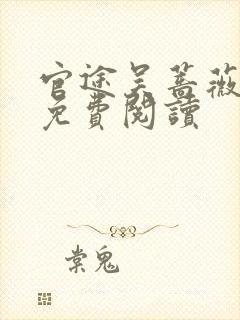 官途吴蔷薇
免費閱讀
棠鬼